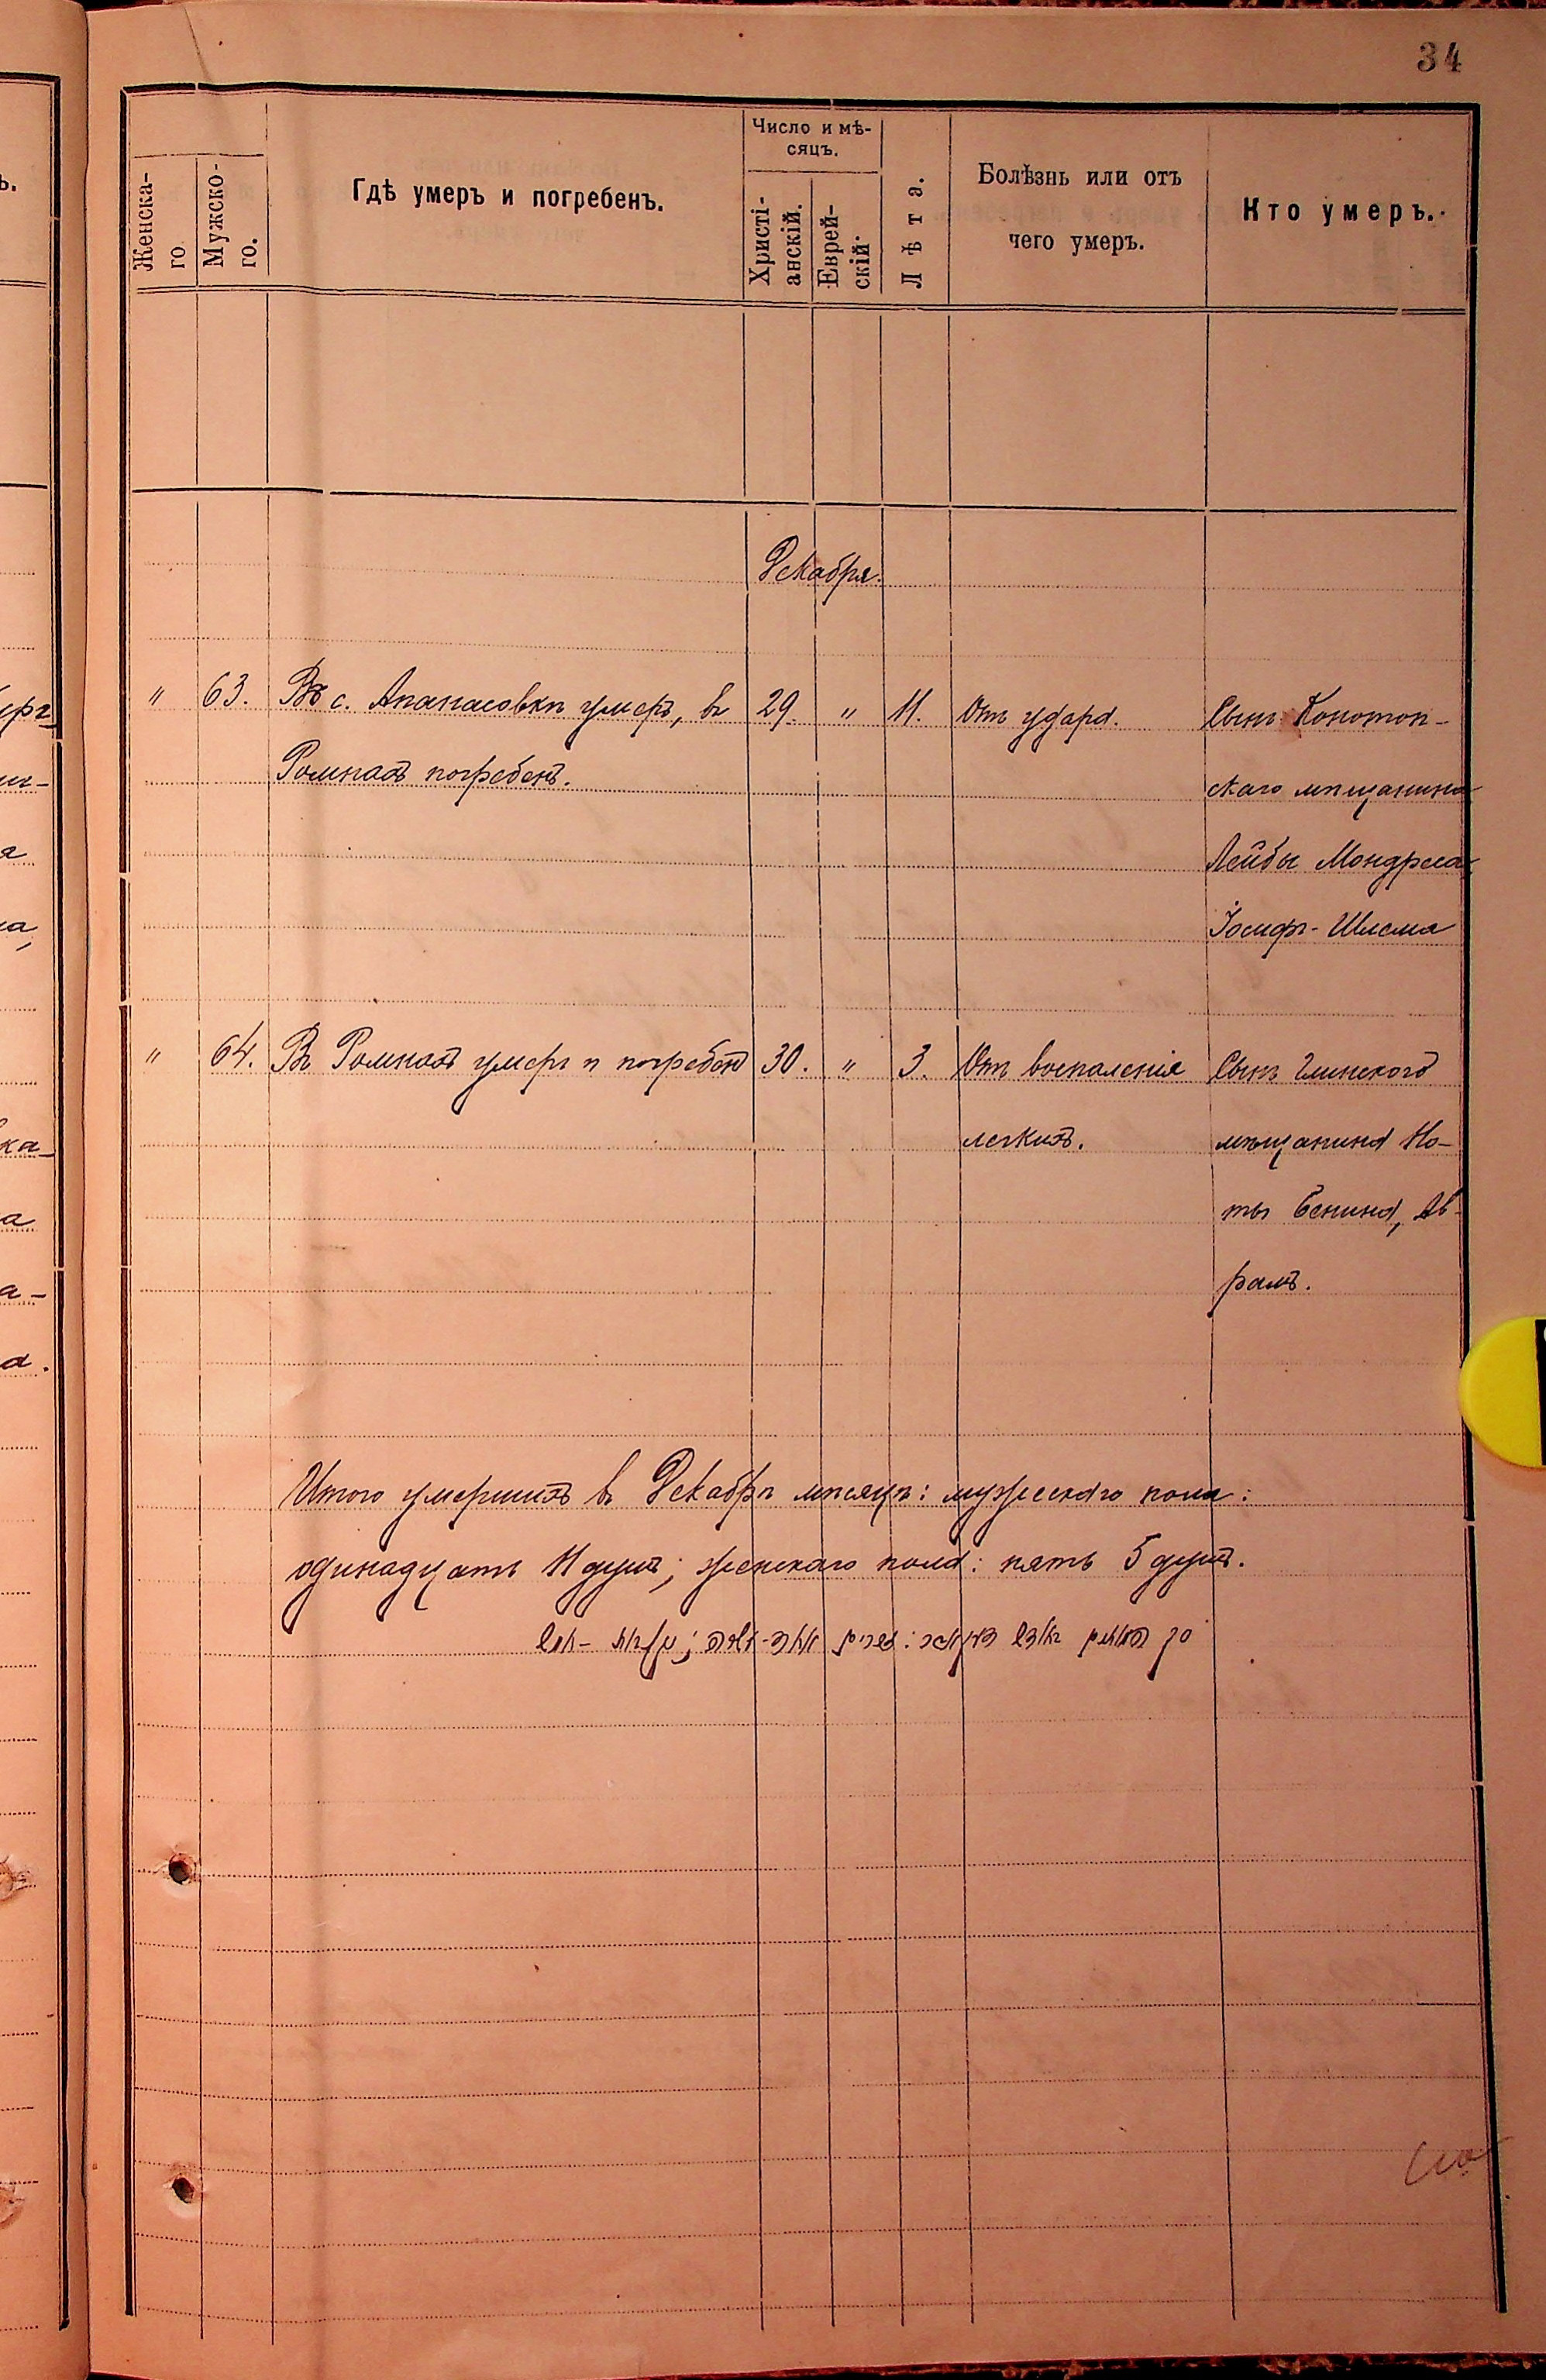 34
Женска-
го
Мужско-
го.
Гдѣ умеръ и погребенъ.
Число и мѣ-
сяцъ.
Христі-
анскій.
Еврей-
скій.
Лѣта.
Болѣзнь или отъ
чего умеръ.
Кто умеръ.
Декабря.
" 63. Въ с. Апанасовкѣ умеръ, въ 29. " 11. Отъ удара. Сынъ Конотоп-
Ромнахъ погребенъ. скаго мѣщанина
Лейбы Мондруса
Іосифъ-Шлема
" 64. Въ Ромнахъ умеръ и погребенъ 30. " 3. Отъ воспаленія Сынъ Глинскаго
легкихъ. мѣщанина Но-
ты Бенина, Ав-
рамъ.
Итого умершихъ въ Декабрѣ мѣсяцѣ: мужескаго пола:
одинадцать 11 душъ; женскаго пола: пять 5 душъ.